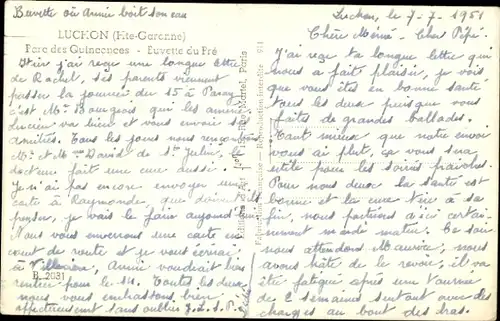 Buvette où Annie boit son eau
LUCHON (Hte-Garonne)
Parc des Quinconces - Buvette du Pré
Hier j'ai reçu une longue lettre
de Rachel, ses parents viennent
passer la journée du 15 à Paray
c'est Mr Bourgeois qui les amène
Lucien va bien et vous envoie ses
amitiés. Tous les jours nous rencontrons
Mr et Mme David de St Julien, le
docteur fait une cure aussi.
Je n'ai pas encore envoyer une
carte à Raymonde, que doit-elle
penser, je vais le faire aujourd'hui
Nous vous enverrons une carte en
cout de route et vous écrirai
à Annie voudrait bien
rentrer pour le 14. Toutes les deux
B. 2031
nous vous embrassons bien
affectueusement sans oublier
Fabrication Française - Reproduction Interdite
Luchon le 7-7-1951
Chère Mémé - Cher Pépé.
J'ai reçu ta longue lettre qui
nous a fait plaisir, je vois
que vous êtes en bonne santé
tous les deux puisque vous
faites de grandes ballades.
Tant mieux que notre envoi
vous ai plut, ça vous sera
utile pour les soirées fraîches.
Pour nous deux la santé est
bonne et la cure tire à sa
fin, nous partirons d'ici certai-
nement mardi matin. Ce soir
nous attendons Maurice, nous
avons hâte de le revoir, il va
être fatigué après une tournée
de 2 semaines surtout avec des
charges au bout des bras.